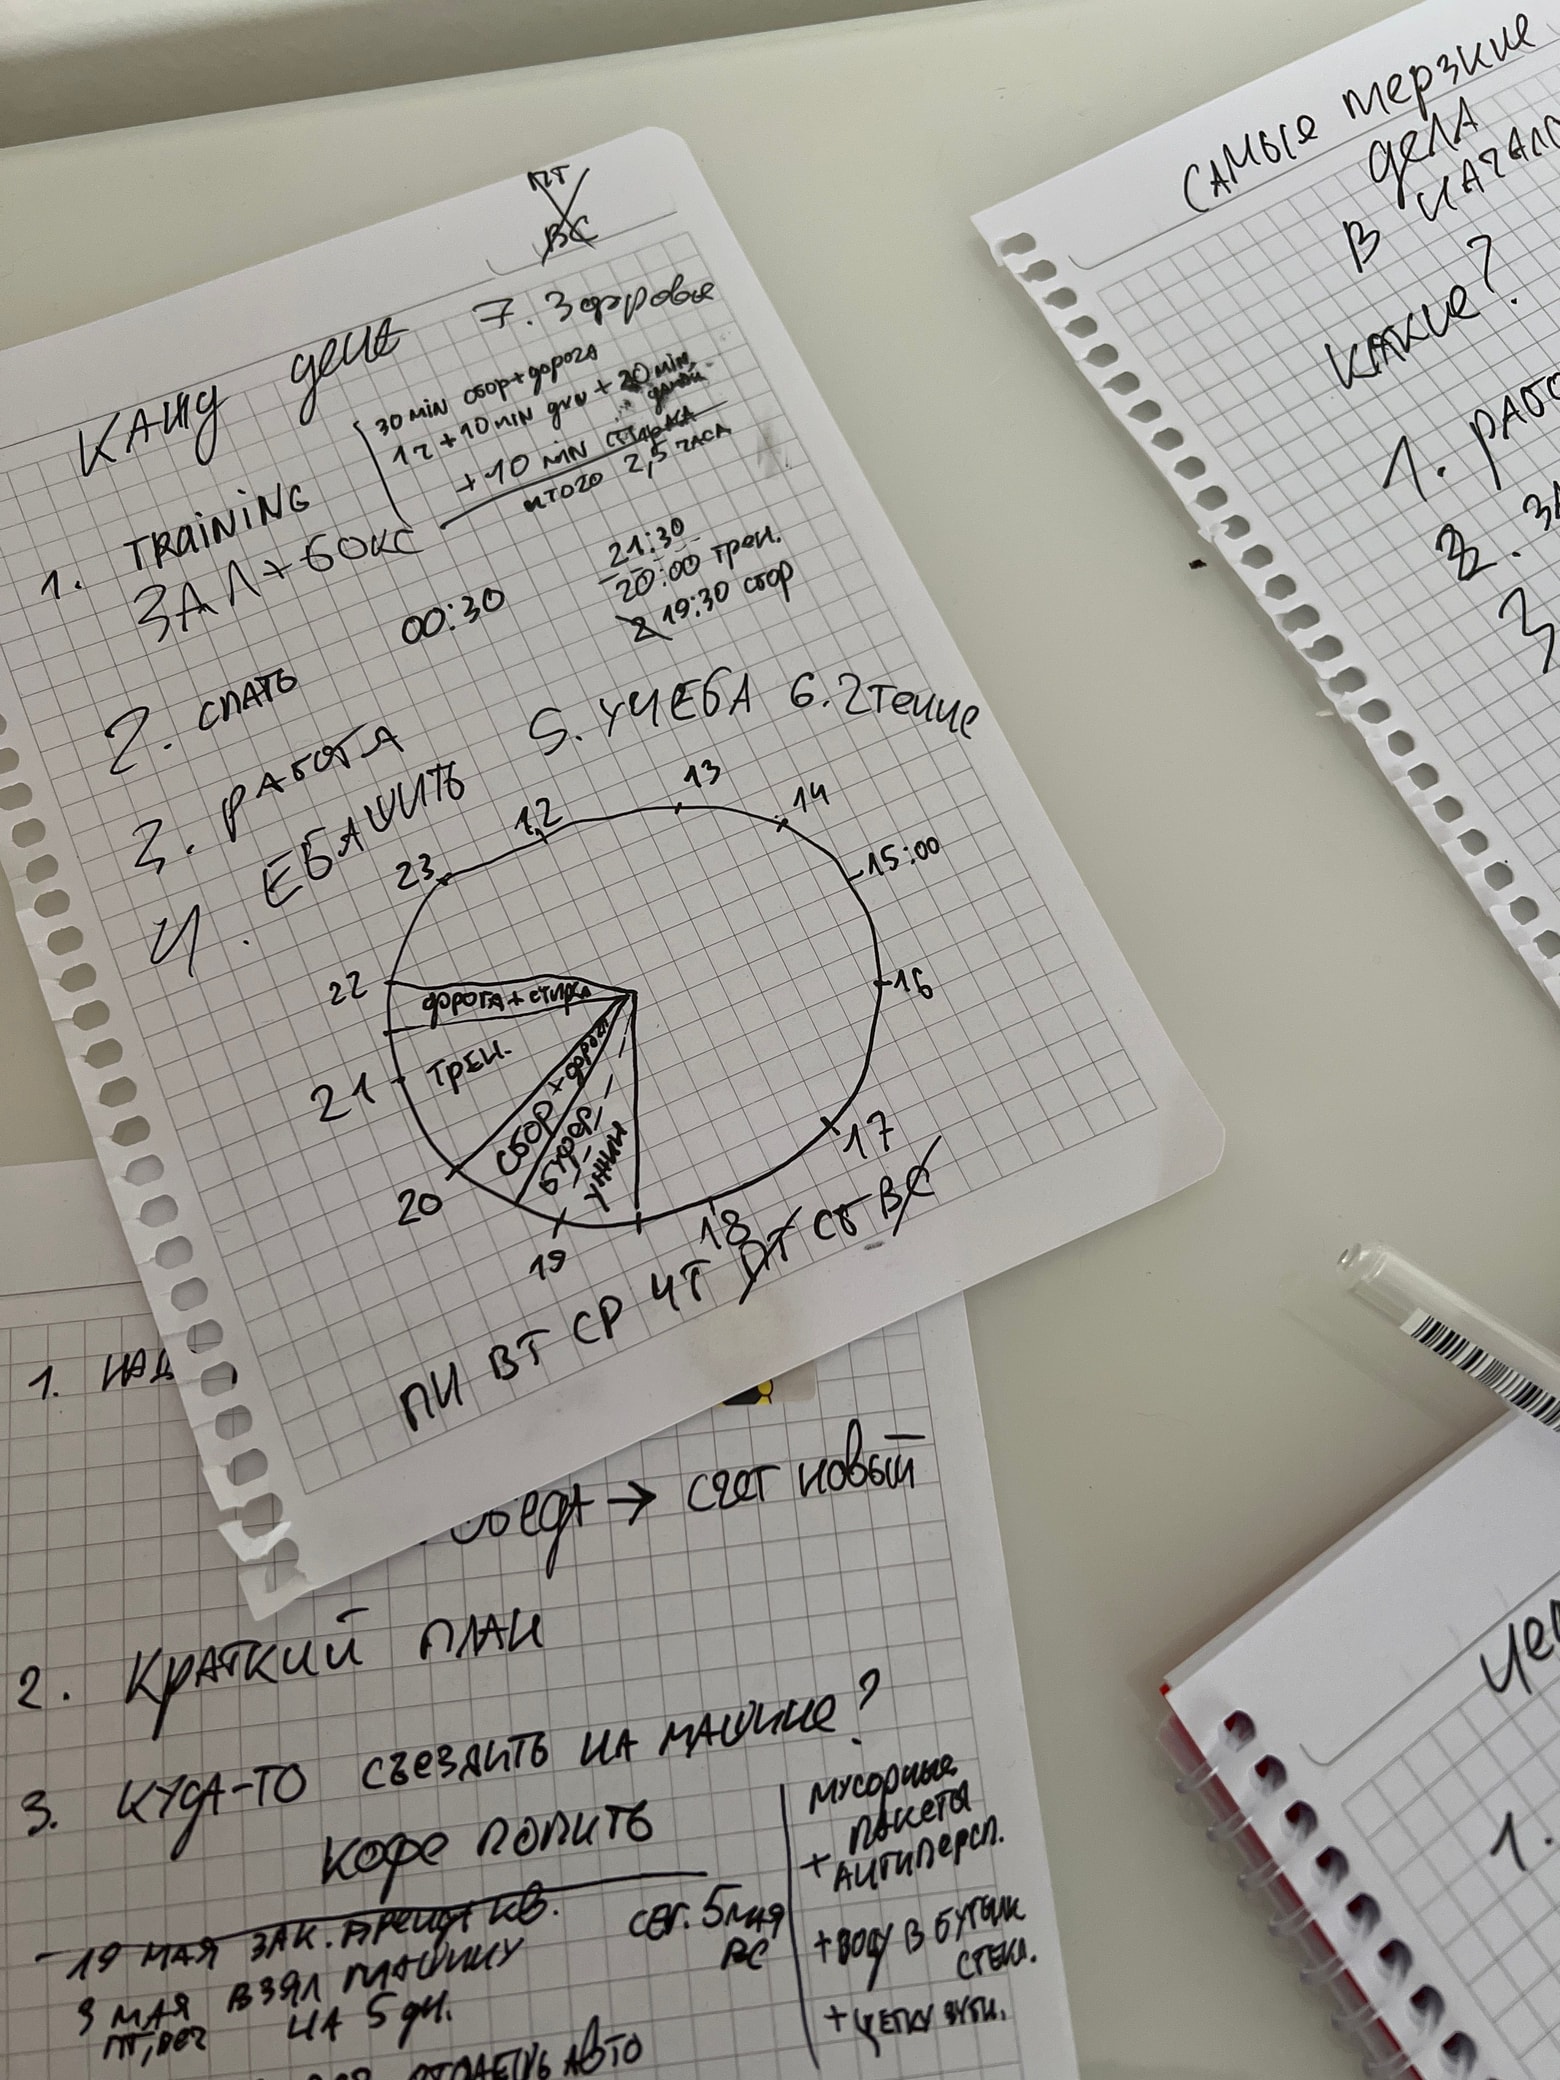 ПТ
ВС
КАЖД ДЕНЬ
7. Здоровье
30 min сбор+дорога
1ч + 10 min душ + 20 min домой
+ 10 min стирка
итого 2,5 часа
1. TRAINING
ЗАЛ + БОКС
21:30
20:00 трен.
19:30 сбор
2. СПАТЬ 00:30
3. РАБОТА
4. ЕБАШИТЬ
5. УЧЕБА 6. Чтение
12
13
14
15:00
16
17
18
19
20
21
22
23
дорога + стирка
ТРЕН.
СБОР + дорога
БУФЕР
УЖИН
ПН ВТ СР ЧТ ПТ СБ ВС
САМЫЕ мерзкие
дела
В НАЧАЛ
КАКИЕ?
1. РАБО
2. ЗА
3
1. НАД
→ счет новый
2. КРАТКИЙ ПЛАН
3. КУДА-ТО СЪЕЗДИТЬ НА МАШИНЕ?
Кофе попить
19 МАЯ ЗАК. АРЕНДА КВ.
3 МАЯ ВЗЯЛ МАШИНУ
ПТ, ВЕЧ НА 5 дн.
СЕГ. 5 мая
ВС
АВТО
МУСОРНЫЕ
ПАКЕТЫ
+ АНТИПЕРСП.
+ ВОДУ В БУТЫЛК
СТЕКЛ.
+ ЩЕТКУ ЗУБН.
1.